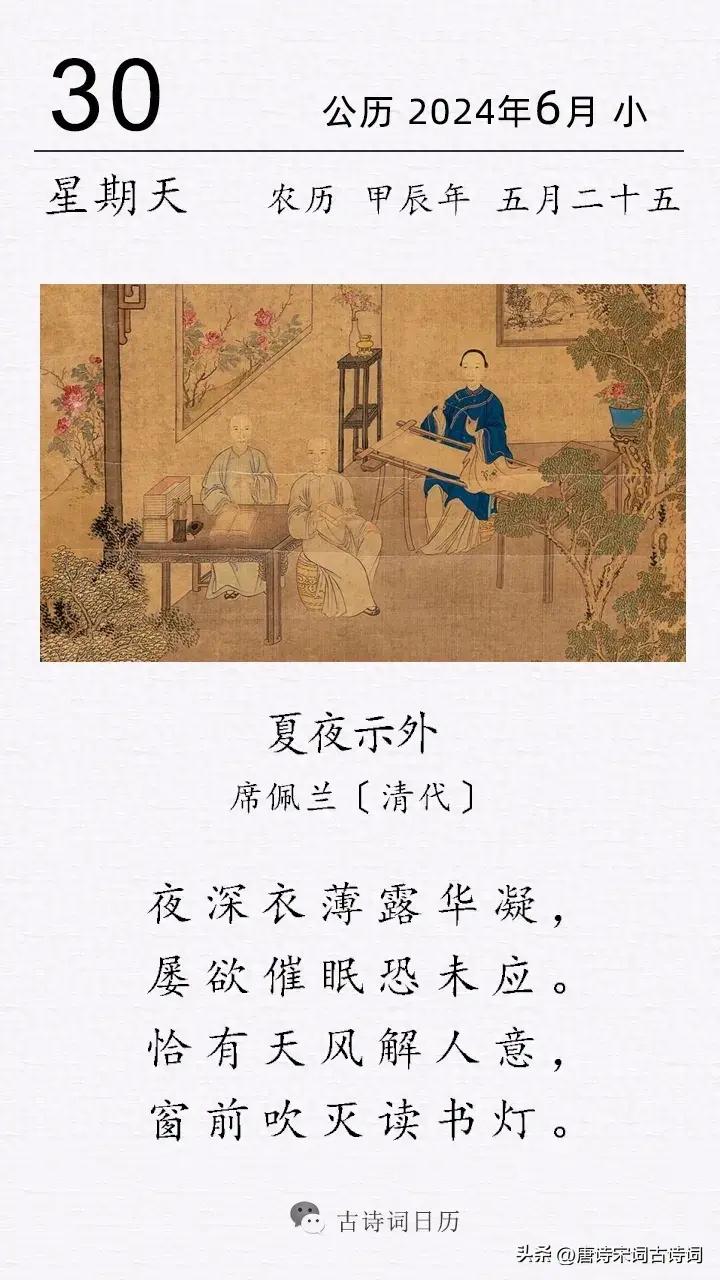 30
公历 2024年6月 小
星期天 农历 甲辰年 五月二十五
夏夜示外
席佩兰〔清代〕
夜深衣薄露华凝，
屡欲催眠恐未应。
恰有天风解人意，
窗前吹灭读书灯。
古诗词日历
头条 @唐诗宋词古诗词